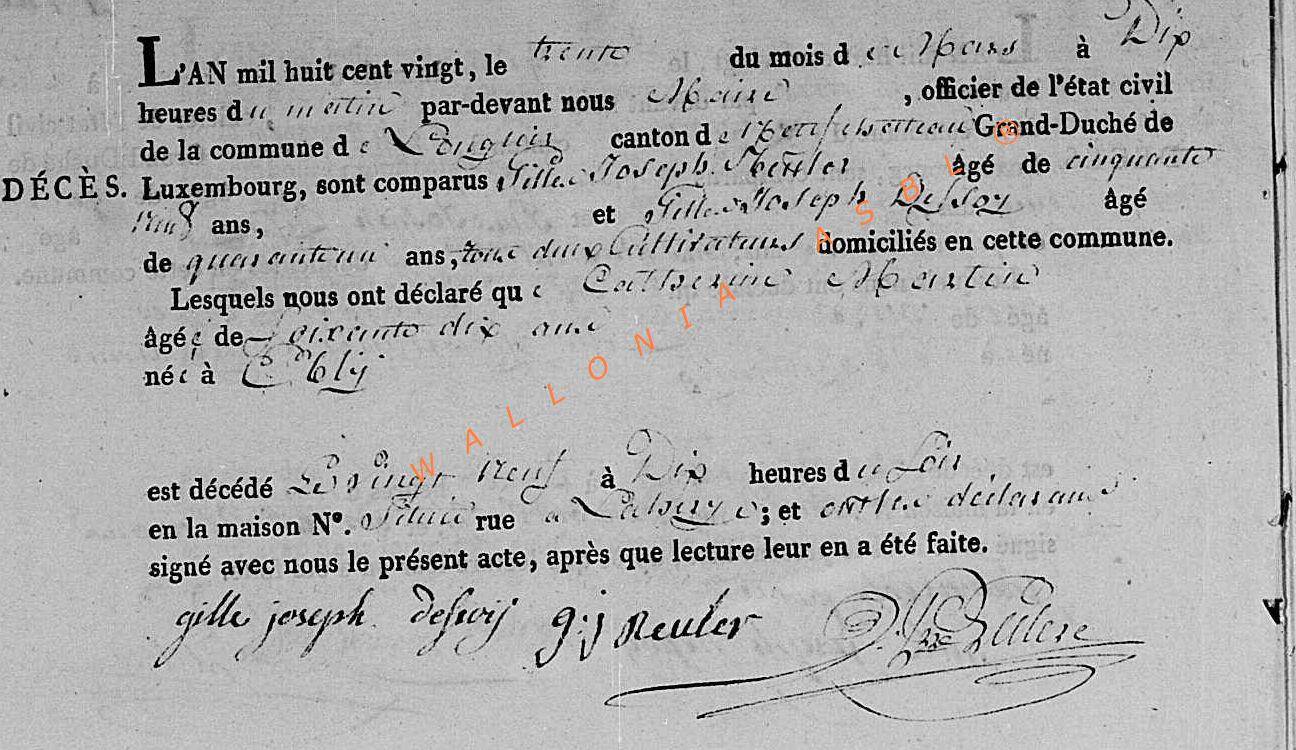 L'AN mil huit cent vingt, le trente du mois de Mars à Dix
heures du matin par-devant nous Maire , officier de l'état civil
de la commune de Longlier canton de Neufchateau Grand-Duché de
DÉCÈS. Luxembourg, sont comparus Gille Joseph Reuler âgé de cinquante
neuf ans, et Gille Joseph Dessoy âgé
de quarante un ans, tous deux Cultivateurs domiciliés en cette commune.
Lesquels nous ont déclaré que Catherine Martin
âgée de soixante dix ans
née à Ebly
est décédé Le vingt neuf à Dix heures du soir
en la maison N°. Située rue a ; et ont les déclarans
signé avec nous le présent acte, après que lecture leur en a été faite.
gille joseph dessoij g:j Reuler
WALLONIA ASBL ©